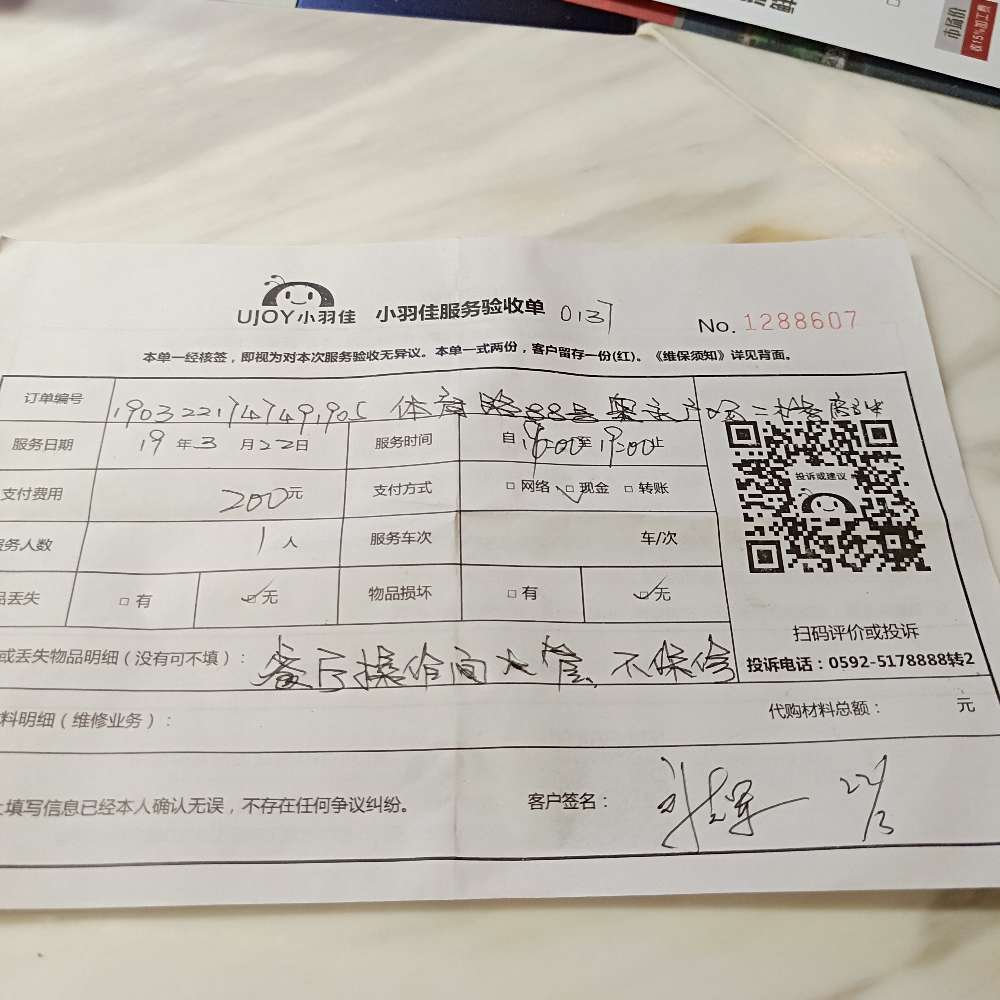 市场价
收15%加工费
UJOY小羽佳 小羽佳服务验收单 0137
No. 1288607
本单一经核签，即视为对本次服务验收无异议。本单一式两份，客户留存一份(红)。《维保须知》详见背面。
订单编号 190322174749,905 体育路88号
服务日期 19 年 3 月 22 日 服务时间 自 至 19:00 止
支付费用 200 元 支付方式 □ 网络 □ 现金 □ 转账
务人数 1 人 服务车次 车/次
品丢失 □ 有 □ 无 物品损坏 □ 有 □ 无
投诉或建议
扫码评价或投诉
投诉电话：0592-5178888转2
或丢失物品明细（没有可不填）： 操作间 不保修
料明细（维修业务）： 代购材料总额： 元
填写信息已经本人确认无误，不存在任何争议纠纷。 客户签名： 22/3